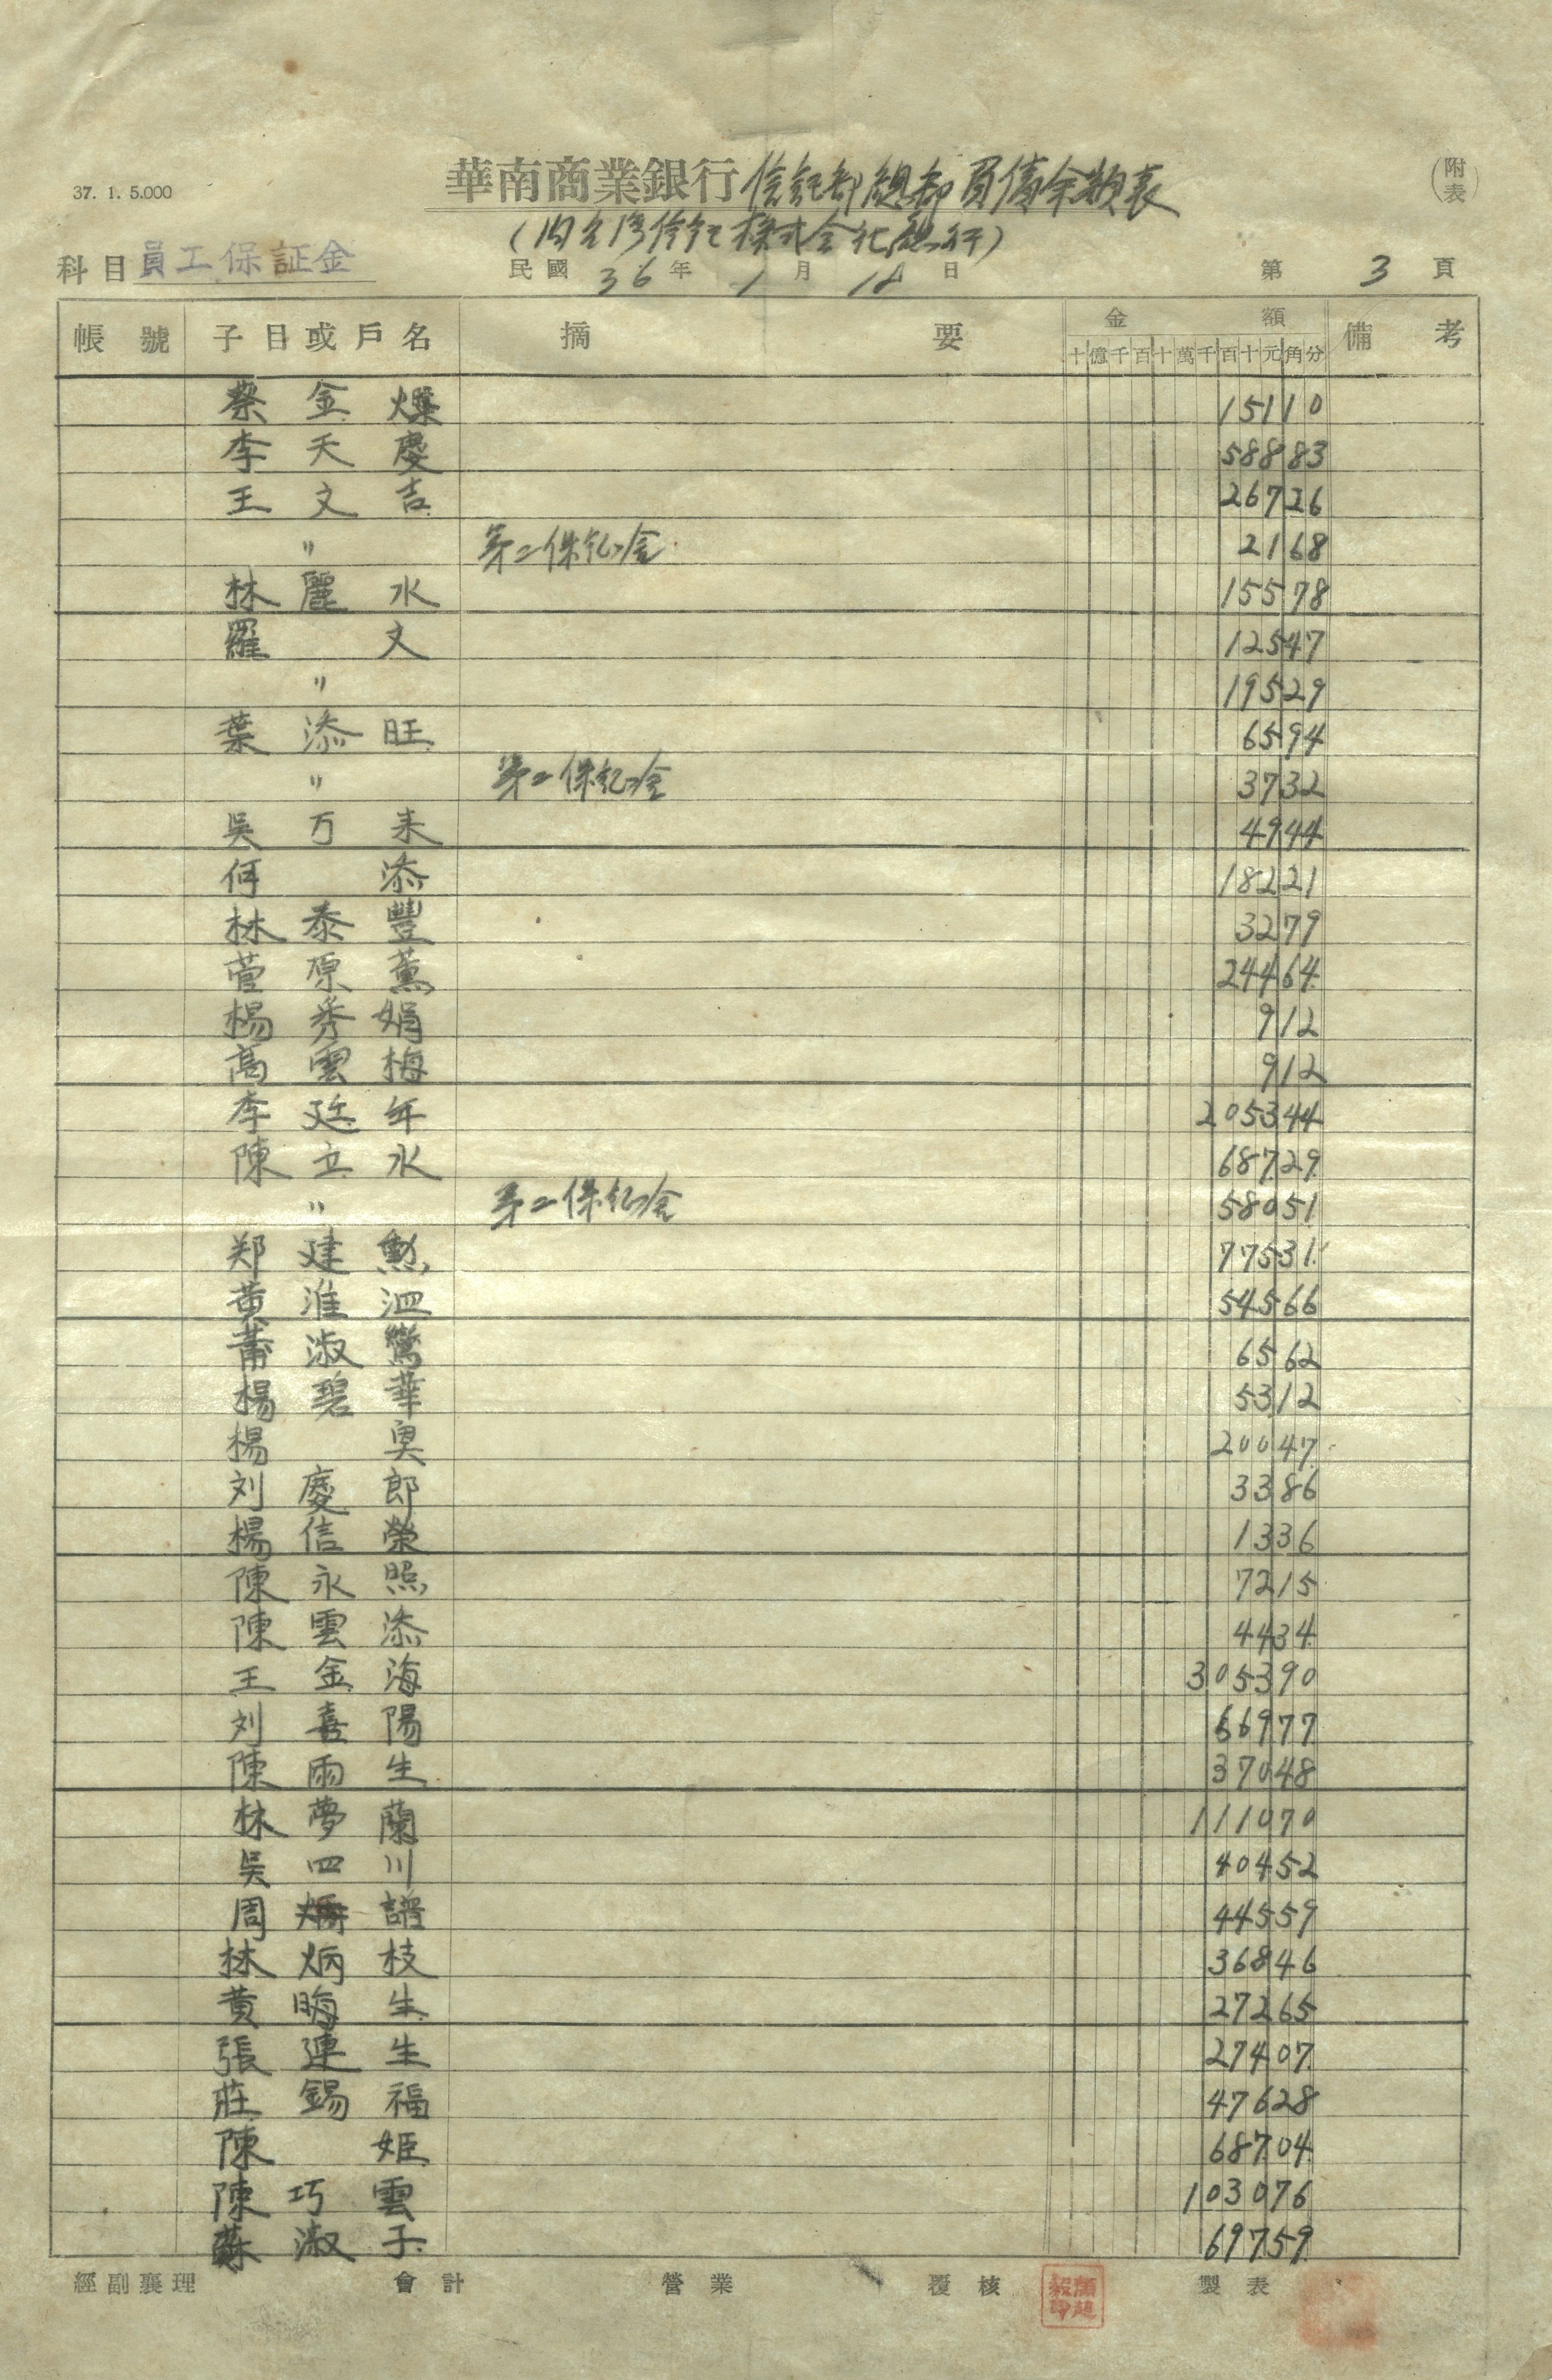 37. 1. 5.000
華南商業銀行信託部總部負債余額表
(附表)
(旧台湾信託株式会社總行)
科目 員工保証金
民國 36 年 1 月 18 日
第 3 頁
帳號 子目或戶名 摘要 金額 備考
十億千百十萬千百十元角分
蔡金燦 15110
李天慶 58883
王文吉 26726
〃 第二保証金 2168
林麗水 15578
羅文 12547
〃 19529
葉添旺 6594
〃 第二保証金 3732
吳万来 4944
何添 18221
林泰豐 3279
菅原薫 24464
楊秀娟 912
高雲梅 912
李延年 205344
陳立水 68729
〃 第二保証金 58051
郑建勲 77531
黄淮泗 54566
莆淑鶯 6562
楊碧華 5312
楊奥 20047
刘慶郎 3386
楊信榮 1336
陳永照 7215
陳雲添 4434
王金海 305390
刘喜陽 66977
陳雨生 37048
林夢蘭 111070
吳四川 40452
周譜 44559
林炳枝 36846
黄晦生 27265
張連生 27407
莊錫福 47628
陳姫 68704
陳巧雲 103076
蘇淑子 69759
經副襄理 會計 營業 覆核 製表